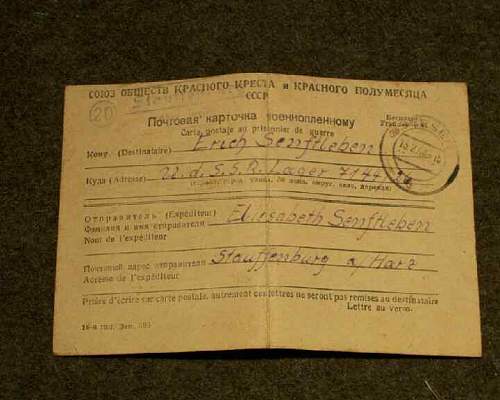 СОЮЗ ОБЩЕСТВ КРАСНОГО КРЕСТА и КРАСНОГО ПОЛУМЕСЯЦА
СССР
20
Почтовая карточка военнопленному
Carte postale au prisonnier de guerre
Кому (Destinataire) Erich Senftleben
Куда (Adresse) U. d. S. S. R. Lager 7144
Отправитель (Expéditeur) Elisabeth Senftleben
Фамилия и имя отправителя
Nom de l'expéditeur
Почтовый адрес отправителя Stauffenburg a/Harz
Adresse de l'expéditeur
Prière d'écrire sur carte postale, autrement ces lettres ne seront pas remises au destinataire
Lettre au verso.
16-я тип. Зак.